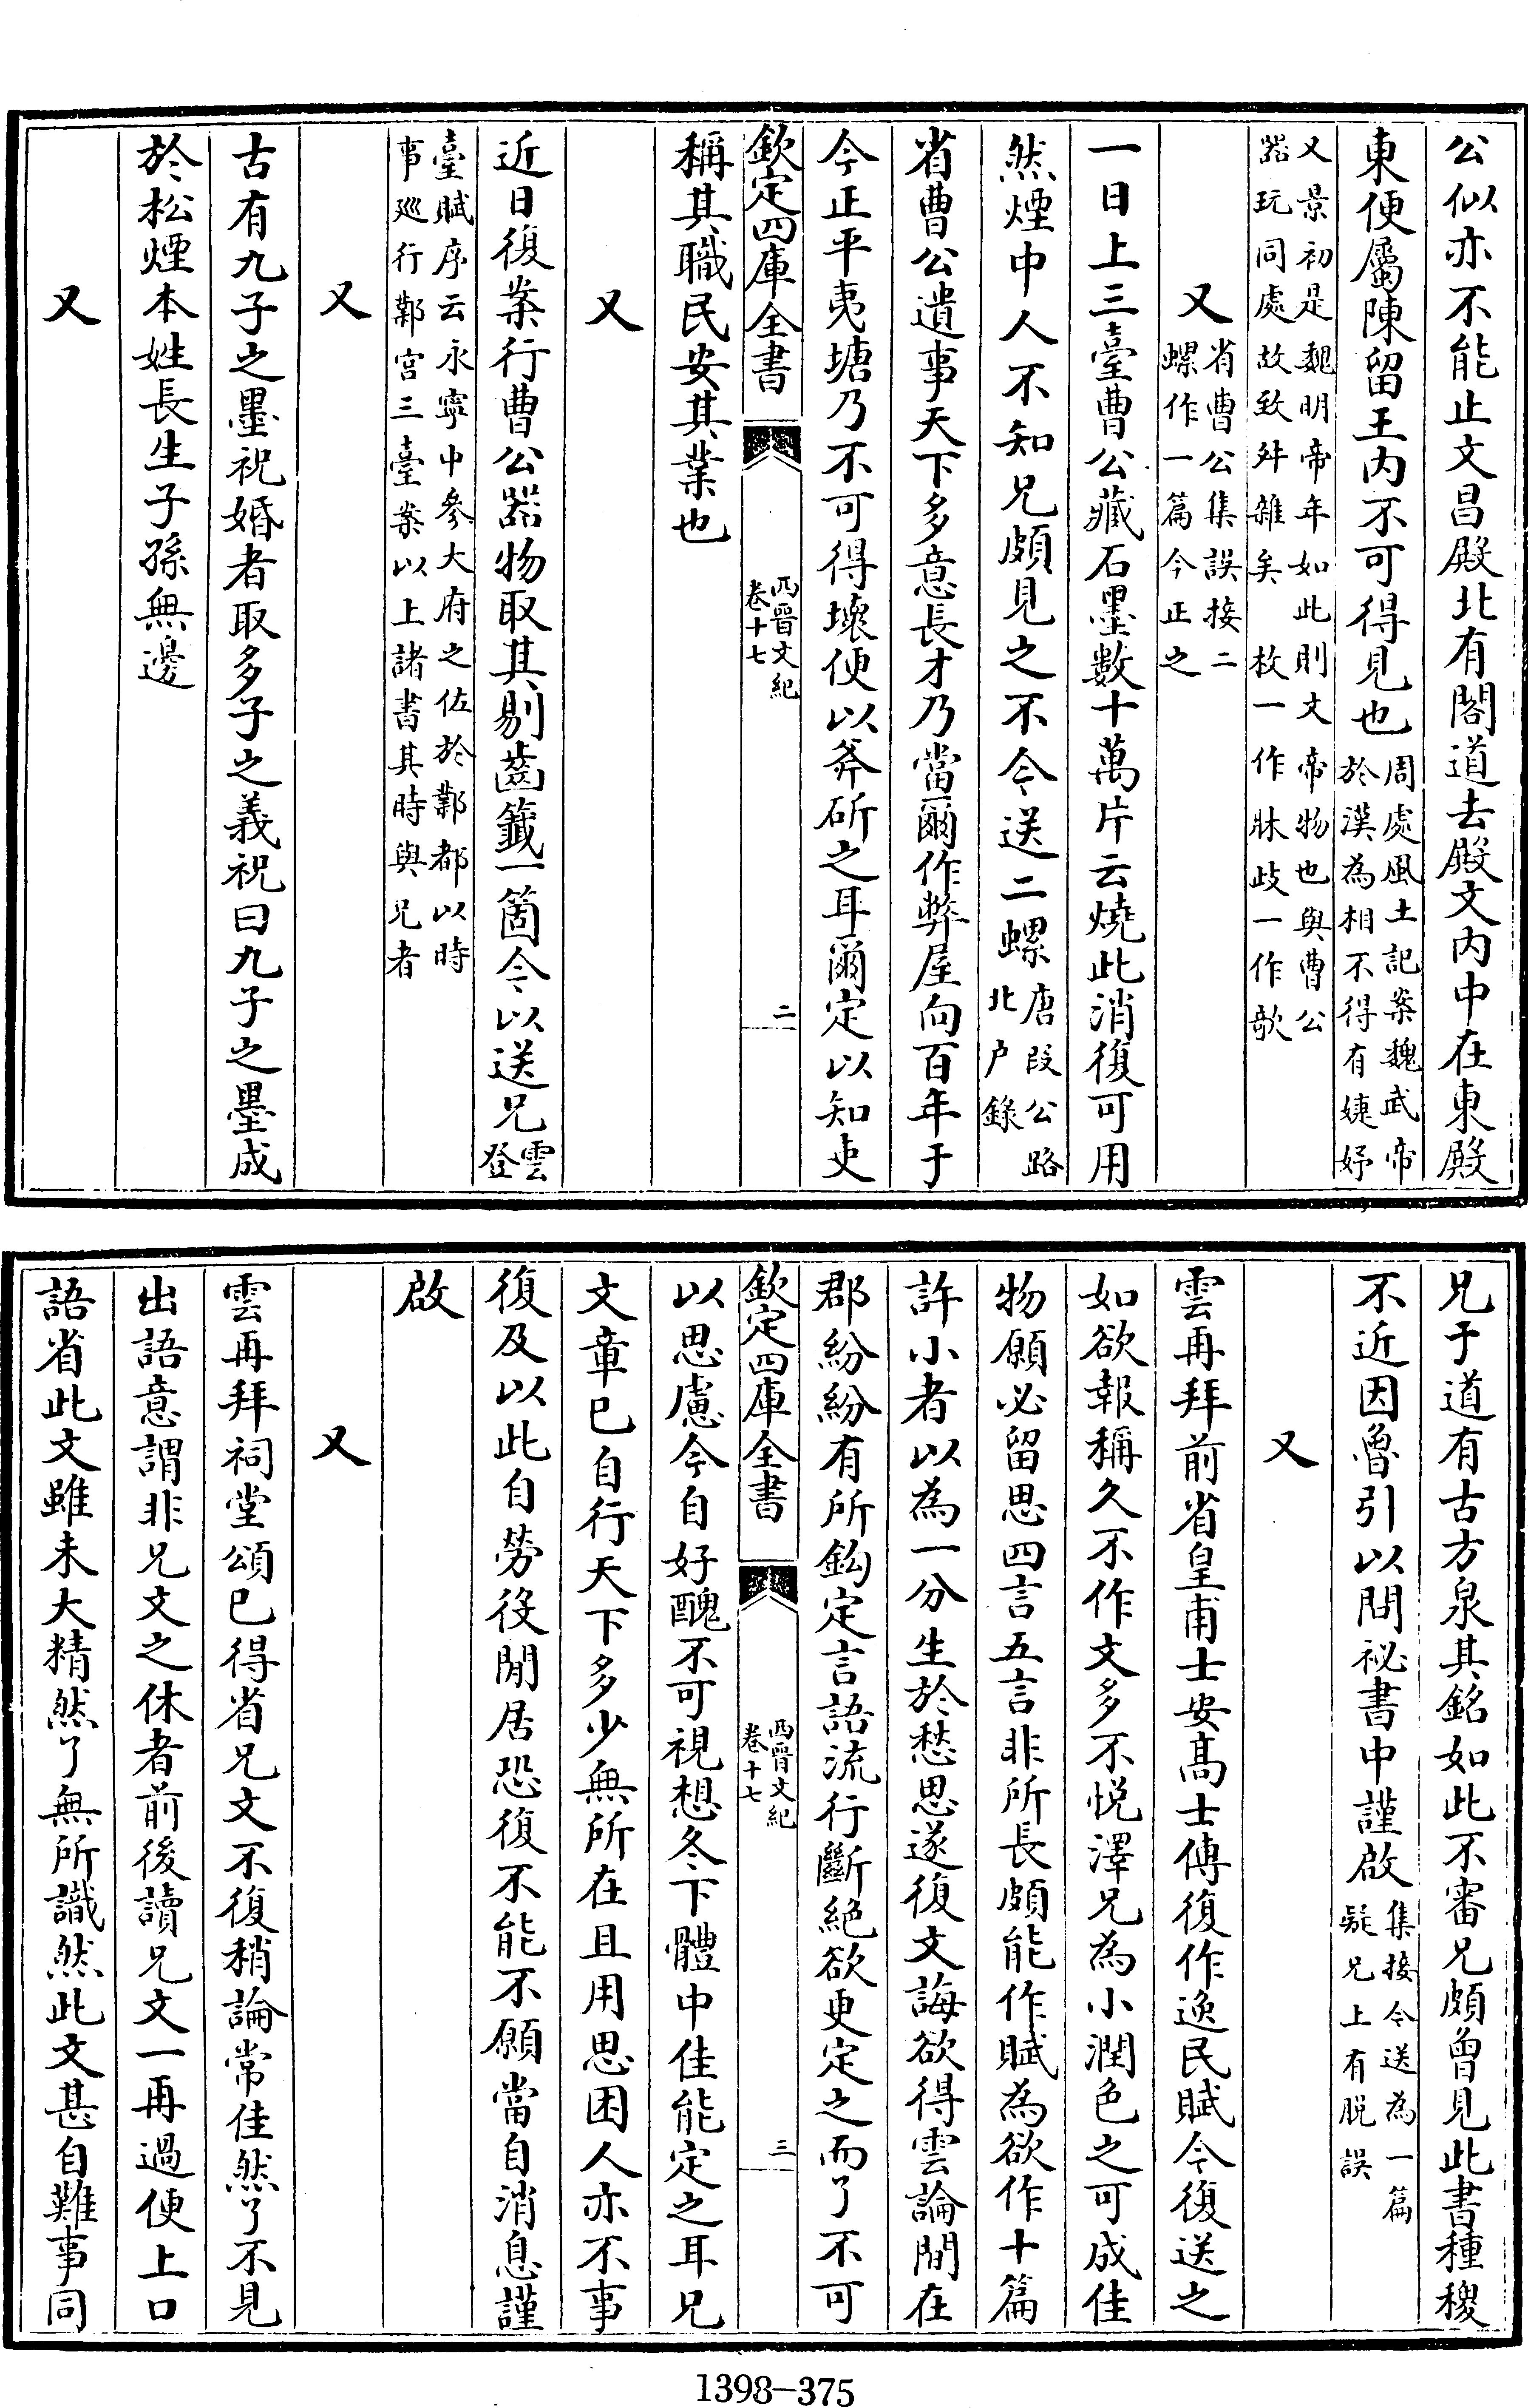 公似亦不能止文昌殿北有閣道去殿文内中在東殿
東便屬陳留王内不可得見也周處風土記案魏武帝
於漢為相不得有婕妤
又景初是魏明帝年如此則文帝物也與曹公
器玩同處故致舛雜矣　枚一作牀歧一作㰤
又省曹公集誤接二
螺作一篇今正之
一日上三臺曹公藏石墨數十萬片云燒此消復可用
然煙中人不知兄頗見之不今送二螺唐段公路
北户錄
省曹公遺事天下多意長才乃當爾作弊屋向百年于
今正平夷塘乃不可得壞便以斧斫之耳爾定以知吏
欽定四庫全書
西晉文紀
卷十七
二
稱其職民安其業也
又
近日復案行曹公器物取其剔齒籤一箇今以送兄雲
登
臺賦序云永寧中參大府之佐於鄴都以時
事巡行鄴宫三臺案以上諸書其時與兄者
又
古有九子之墨祝婚者取多子之義祝曰九子之墨成
於松煙本姓長生子孫無邊
又
兄于道有古方泉其銘如此不審兄頗曾見此書種稷
不近因魯引以問祕書中謹啟集接今送為一篇
疑兄上有脱誤
又
雲再拜前省皇甫士安髙士傅復作逸民賦今復送之
如欲報稱久不作文多不悦澤兄為小潤色之可成佳
物願必留思四言五言非所長頗能作賦為欲作十篇
許小者以為一分生於愁思遂復文誨欲得雲論間在
郡紛紛有所鈎定言語流行斷絶欲更定之而了不可
欽定四庫全書
西晉文紀
卷十七
三
以思慮今自好醜不可視想冬下體中佳能定之耳兄
文章已自行天下多少無所在且用思困人亦不事
復及以此自勞役閒居恐復不能不願當自消息謹
啟
又
雲再拜祠堂頌已得省兄文不復稍論常佳然了不見
出語意謂非兄文之休者前後讀兄文一再過便上口
語省此文雖未大精然了無所識然此文甚自難事同
1398-375